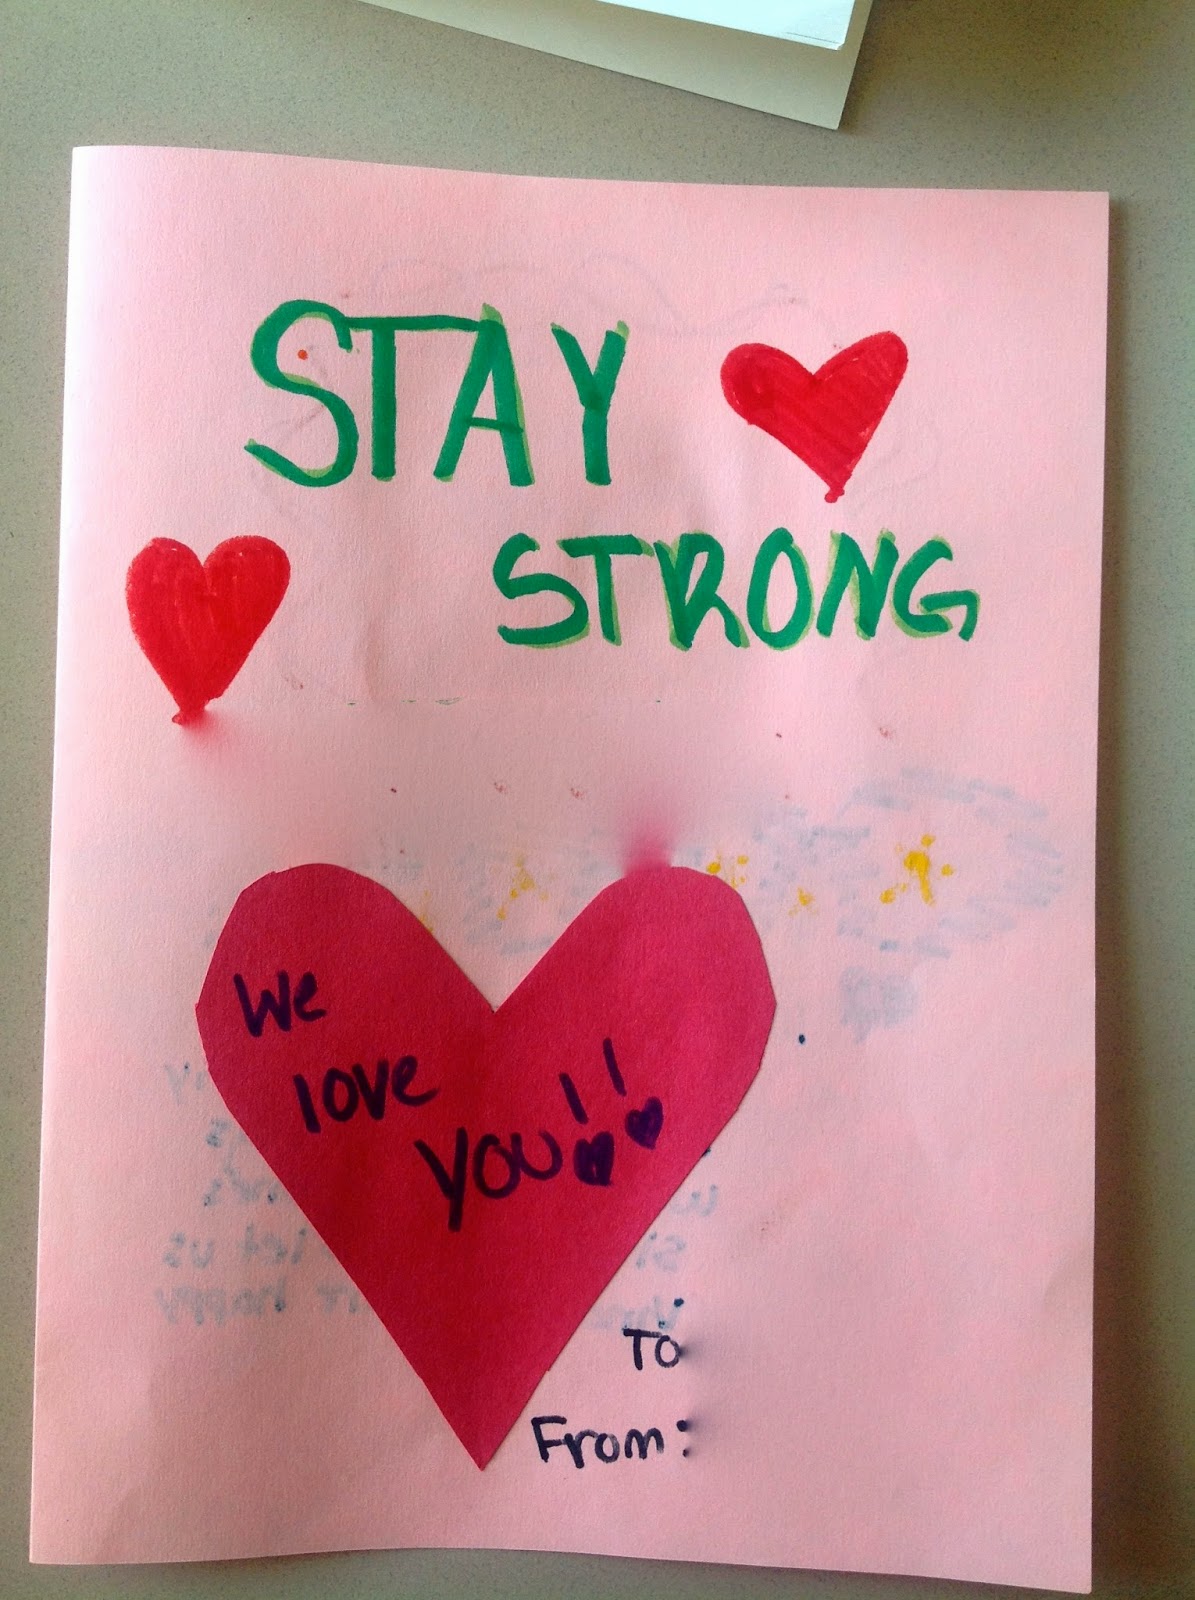 STAY
STRONG
We
love
you!!
To
From: